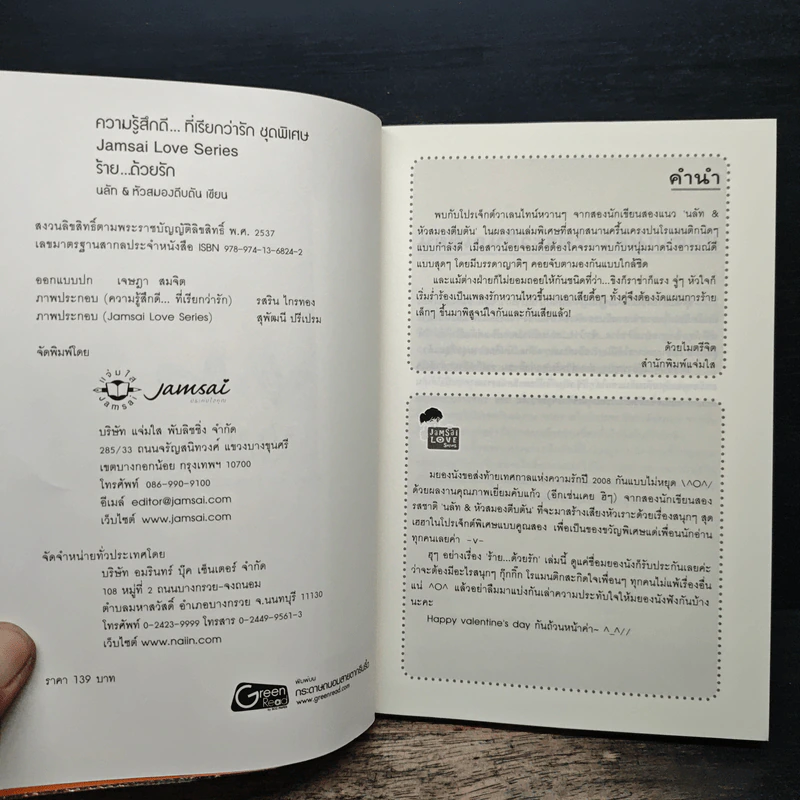 ความรู้สึกดี... ที่เรียกว่ารัก ชุดพิเศษ
Jamsai Love Series
ร้าย...ด้วยรัก
นลัท & หัวสมองตีบตัน เขียน
สงวนลิขสิทธิ์ตามพระราชบัญญัติลิขสิทธิ์ พ.ศ. 2537
เลขมาตรฐานสากลประจำหนังสือ ISBN 978-974-13-6824-2
ออกแบบปก เจษฎา สมจิต
ภาพประกอบ (ความรู้สึกดี... ที่เรียกว่ารัก) รสริน ไกรทอง
ภาพประกอบ (Jamsai Love Series) สุพัฒนี ปรีเปรม
จัดพิมพ์โดย
แจ่มใส
Jamsai
Jamsai
บริษัท แจ่มใส พับลิชชิ่ง จำกัด
285/33 ถนนจรัญสนิทวงศ์ แขวงบางขุนศรี
เขตบางกอกน้อย กรุงเทพฯ 10700
โทรศัพท์ 086-990-9100
อีเมล์ editor@jamsai.com
เว็บไซต์ www.jamsai.com
จัดจำหน่ายทั่วประเทศโดย
บริษัท อมรินทร์ บุ๊ค เซ็นเตอร์ จำกัด
108 หมู่ที่ 2 ถนนบางกรวย-จงถนอม
ตำบลมหาสวัสดิ์ อำเภอบางกรวย จ.นนทบุรี 11130
โทรศัพท์ 0-2423-9999 โทรสาร 0-2449-9561-3
เว็บไซต์ www.naiin.com
ราคา 139 บาท
Green
Read
พิมพ์บน
กระดาษถนอมสายตากรีนรี้ด
www.greenread.com
คำนำ
พบกับโปรเจ็กต์วาเลนไทน์หวานๆ จากสองนักเขียนสองแนว 'นลัท &
หัวสมองตีบตัน' ในผลงานเล่มพิเศษที่สนุกสนานครื้นเครงปนโรแมนติกนิดๆ
แบบกำลังดี เมื่อสาวน้อยจอมดื้อต้องโคจรมาพบกับหนุ่มมาดนิ่งอารมณ์ดี
แบบสุดๆ โดยมีบรรดาญาติๆ คอยจับตามองกันแบบใกล้ชิด
และแม้ต่างฝ่ายก็ไม่ยอมถอยให้กันชนิดที่ว่า...ขิงก็ราข่าก็แรง จู่ๆ หัวใจก็
เริ่มร่ำร้องเป็นเพลงรักหวานไหวขึ้นมาเอาเสียดื้อๆ ทั้งคู่จึงต้องงัดแผนการร้าย
เล็กๆ ขึ้นมาพิสูจน์ใจกันและกันเสียแล้ว!
ด้วยไมตรีจิต
สำนักพิมพ์แจ่มใส
JAMSAI
LOVE
Series
มยองนังขอส่งท้ายเทศกาลแห่งความรักปี 2008 กันแบบไม่หยุด \^O^/
ด้วยผลงานคุณภาพเยี่ยมคับแก้ว (อีกเช่นเคย ฮิๆ) จากสองนักเขียนสอง
รสชาติ 'นลัท & หัวสมองตีบตัน' ที่จะมาสร้างเสียงหัวเราะด้วยเรื่องสนุกๆ สุด
เฮฮาในโปรเจ็กต์พิเศษแบบคูณสอง เพื่อเป็นของขวัญพิเศษแด่เพื่อนนักอ่าน
ทุกคนเลยค่า -v-
ฮุๆ อย่างเรื่อง 'ร้าย...ด้วยรัก' เล่มนี้ ดูแค่ชื่อมยองนังก็รับประกันเลยค่ะ
ว่าจะต้องมีอะไรสนุกๆ กุ๊กกิ๊ก โรแมนติกสะกิดใจเพื่อนๆ ทุกคนไม่แพ้เรื่องอื่น
แน่ ^O^ แล้วอย่าลืมมาแบ่งกันเล่าความประทับใจให้มยองนังฟังกันบ้าง
นะคะ
Happy valentine's day กันถ้วนหน้าค่า~ ^_^//